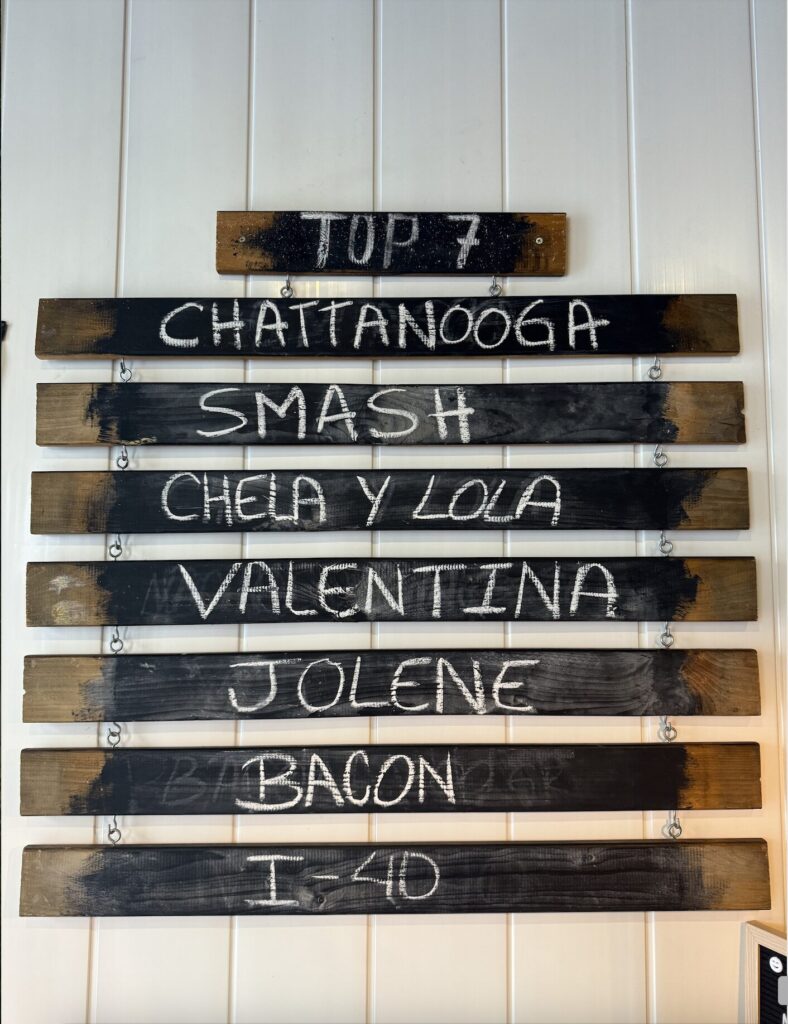 TOP 7
CHATTANOOGA
SMASH
CHELA Y LOLA
VALENTINA
JOLENE
BACON
I-40